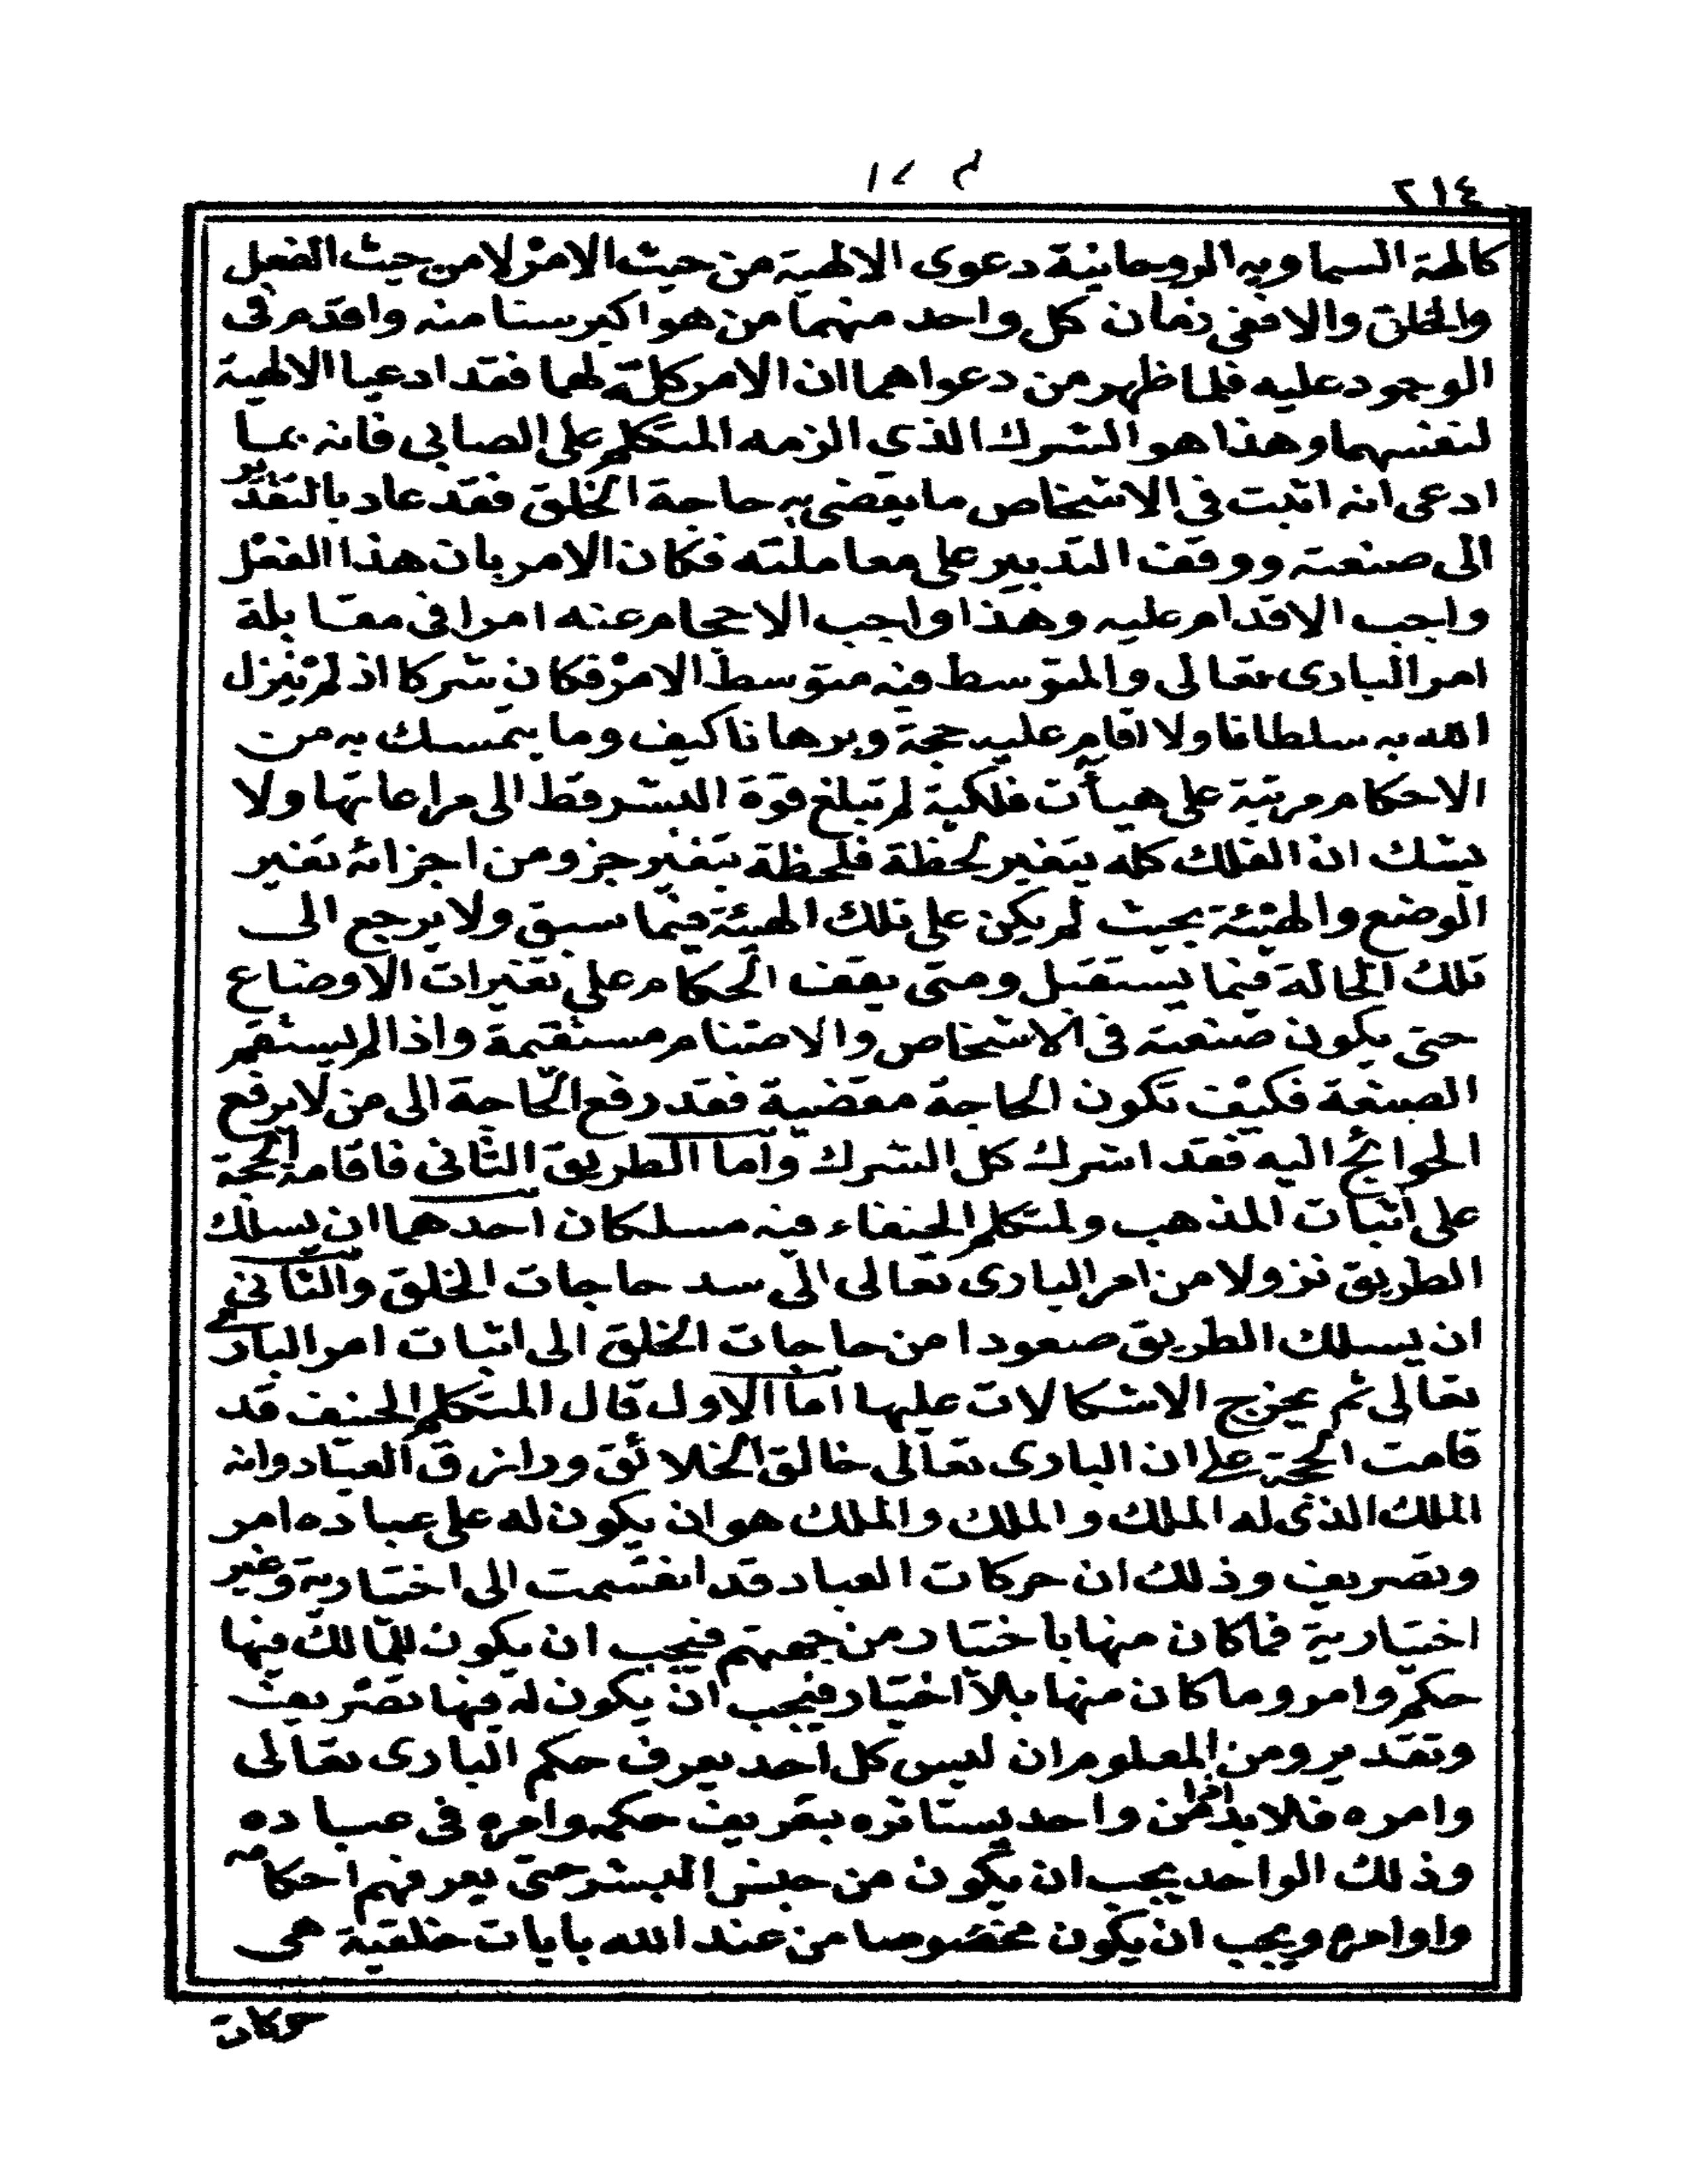 ٢١٤
كالهة السماويه الروحانية دعوى الالهية من حيث الامر لا من حيث الفعل
والخلق والا ففى زمان كل واحد منهما من هو اكبر سنا منه واقدم فى
الوجود عليه فلما ظهر من دعواهما ان الامر كله لهما فقد ادعيا الالهية
لنفسهما وهذا هو الشرك الذى الزمه المتكلم على الصابى فانه بما
ادعى انه اثبت فى الاشخاص ما يقضى به حاجة الخلق فقد عاد بالتقدير
الى صنعته ووقف التدبير على معاملته فكان الامر بان هذا الفعل
واجب الاقدام عليه وهذا واجب الاحجام عنه امرا فى مقابلة
امر البارى تعالى والمتوسط فيه متوسط الامر فكان شركا اذ لم ينزل
الله به سلطانا ولا اقام عليه حجة وبرهانا كيف وما يتمسك به من
الاحكام مرتبة على هيأت فلكية لم تبلغ قوة البشر قط الى مراعاتها ولا
يشك ان الفلك كله يتغير لحظة فلحظة بتغير جزو من اجزائه تغير
الوضع والهيئة بحيث لم يكن على تلك الهيئة فيما سبق ولا يرجع الى
تلك الحالة فيما يستقبل ومتى يقف الحكام على تغيرات الاوضاع
حتى يكون صنعته فى الاشخاص والاصنام مستقيمة واذا لم يستقم
الصنعة فكيف تكون الحاجة مقضية فقد رفع الحاجة الى من لا يرفع
الحوائج اليه فقد اشرك كل الشرك واما الطريق الثانى فاقامة الحجة
على اثبات المذهب ولمتكلم الحنفاء فيه مسلكان احدهما ان يسلك
الطريق نزولا من امر البارى تعالى الى سد حاجات الخلق والثانى
ان يسلك الطريق صعودا من حاجات الخلق الى اثبات امر البارى
تعالى ثم يخرج الاشكالات عليها اما الاول قال المتكلم الحنيف قد
قامت الحجة على ان البارى تعالى خالق الخلائق ورازق العباد وانه
الملك الذى له الملك والملك والملك هو ان يكون له على عباده امر
وتصريف وذلك ان حركات العباد قد انقسمت الى اختيارية وغير
اختيارية فما كان منها باختيار من جهتهم فيجب ان يكون للمالك فيها
حكم وامر وما كان منها بلا اختيار فيجب ان يكون له فيها تصريف
وتقدير ومن المعلوم ان ليس كل احد يعرف حكم البارى تعالى
وامره فلا بد اذا من واحد يستاثره بتعريف حكمه وامره فى عباده
وذلك الواحد يجب ان يكون من جنس البشر حتى يعرفهم احكامه
واوامره ويجب ان يكون مخصوصا من عند الله بايات خلقية هى
حركات